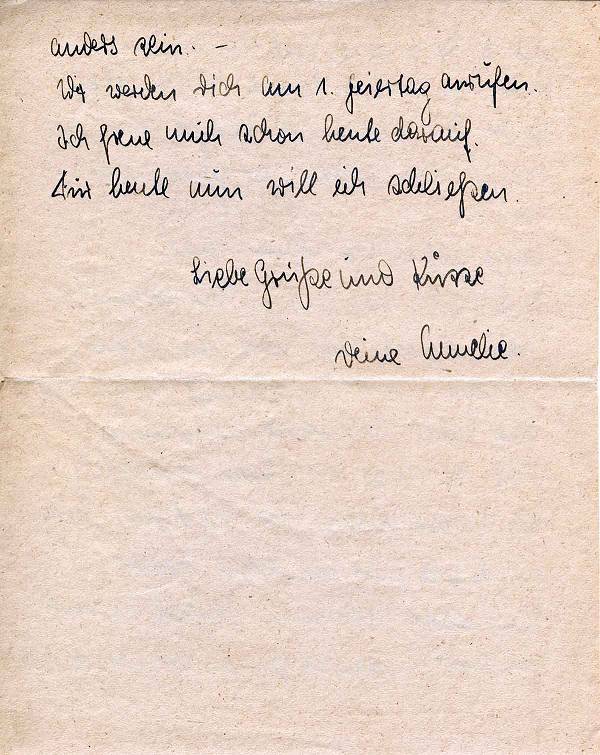 anders sein. –
Wir werden Dich am 1. Feiertag anrufen.
Ich freue mich schon heute darauf.
Für heute nun will ich schließen.
Liebe Grüße und Küsse
Deine Annelie.